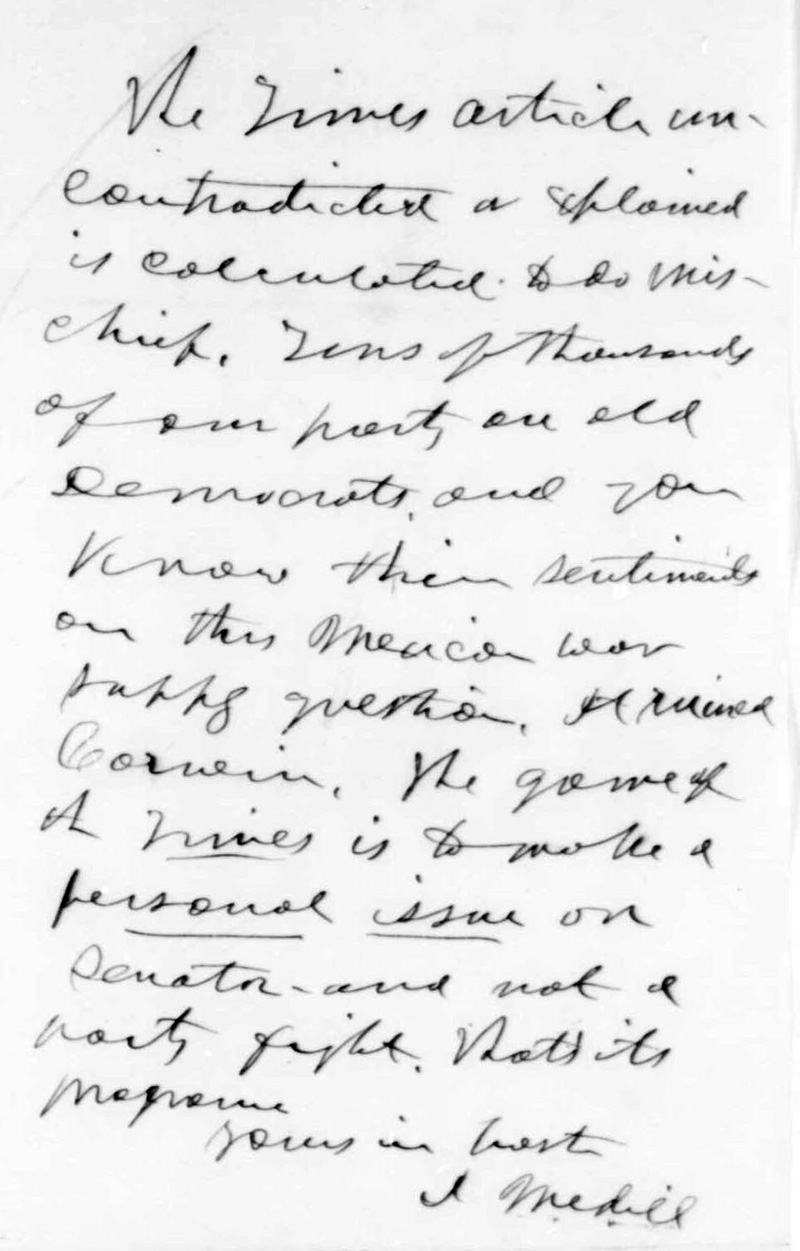 The Times article un-
contradicted or explained
is calculated to do mis-
chief. Tens of thousands
of our party are old
Democrats, and you
know their sentiments
on this Mexican war
supply question. It ruined
Corwin. The game of
the Times is to make a
personal issue on
Senator - and not a
party fight. That's its
programe
Yours in haste
J Medill